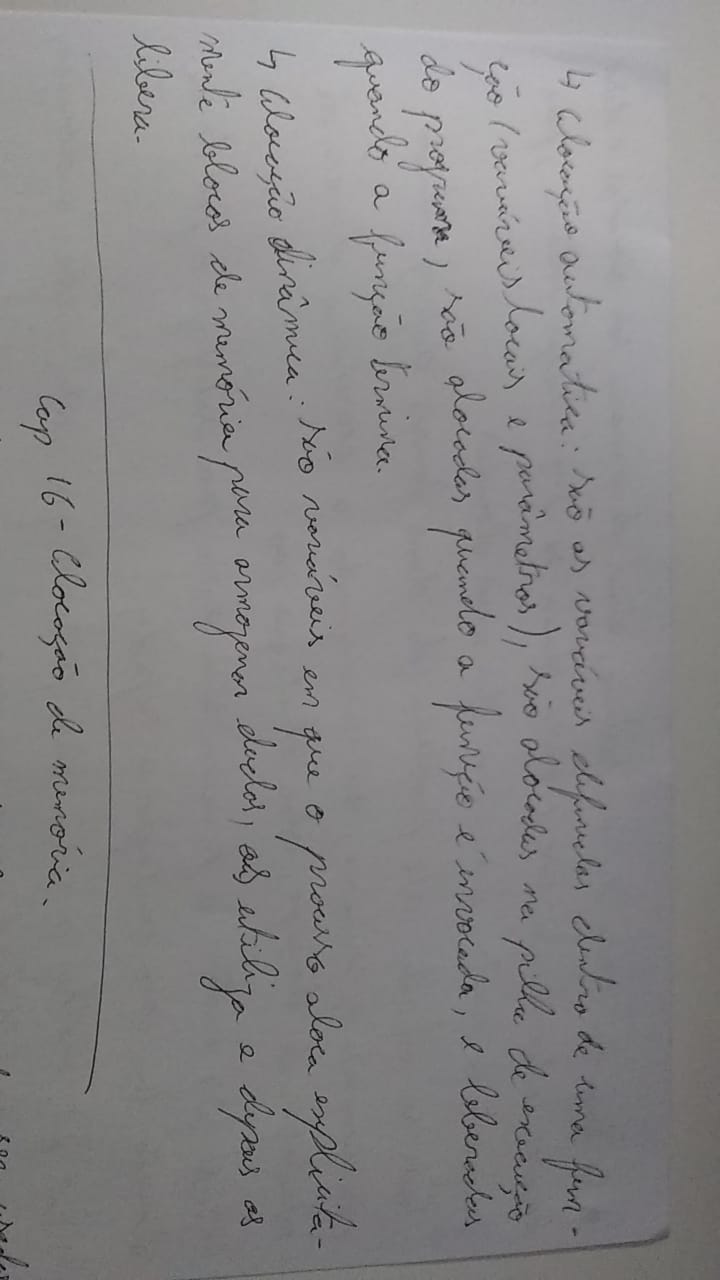 ↳ Alocação automatica: são as variáveis definidas dentro de uma fun-
ção (variáveis locais e parâmetros), são alocadas na pilha de execução
do programa, são alocadas quando a função é invocada, e liberadas
quando a função termina.
↳ Alocação dinâmica: são variáveis em que o processo aloca explicita-
mente blocos de memória para armazenar dados, os utiliza e depois os
libera.
Cap 16 - Alocação de memória.